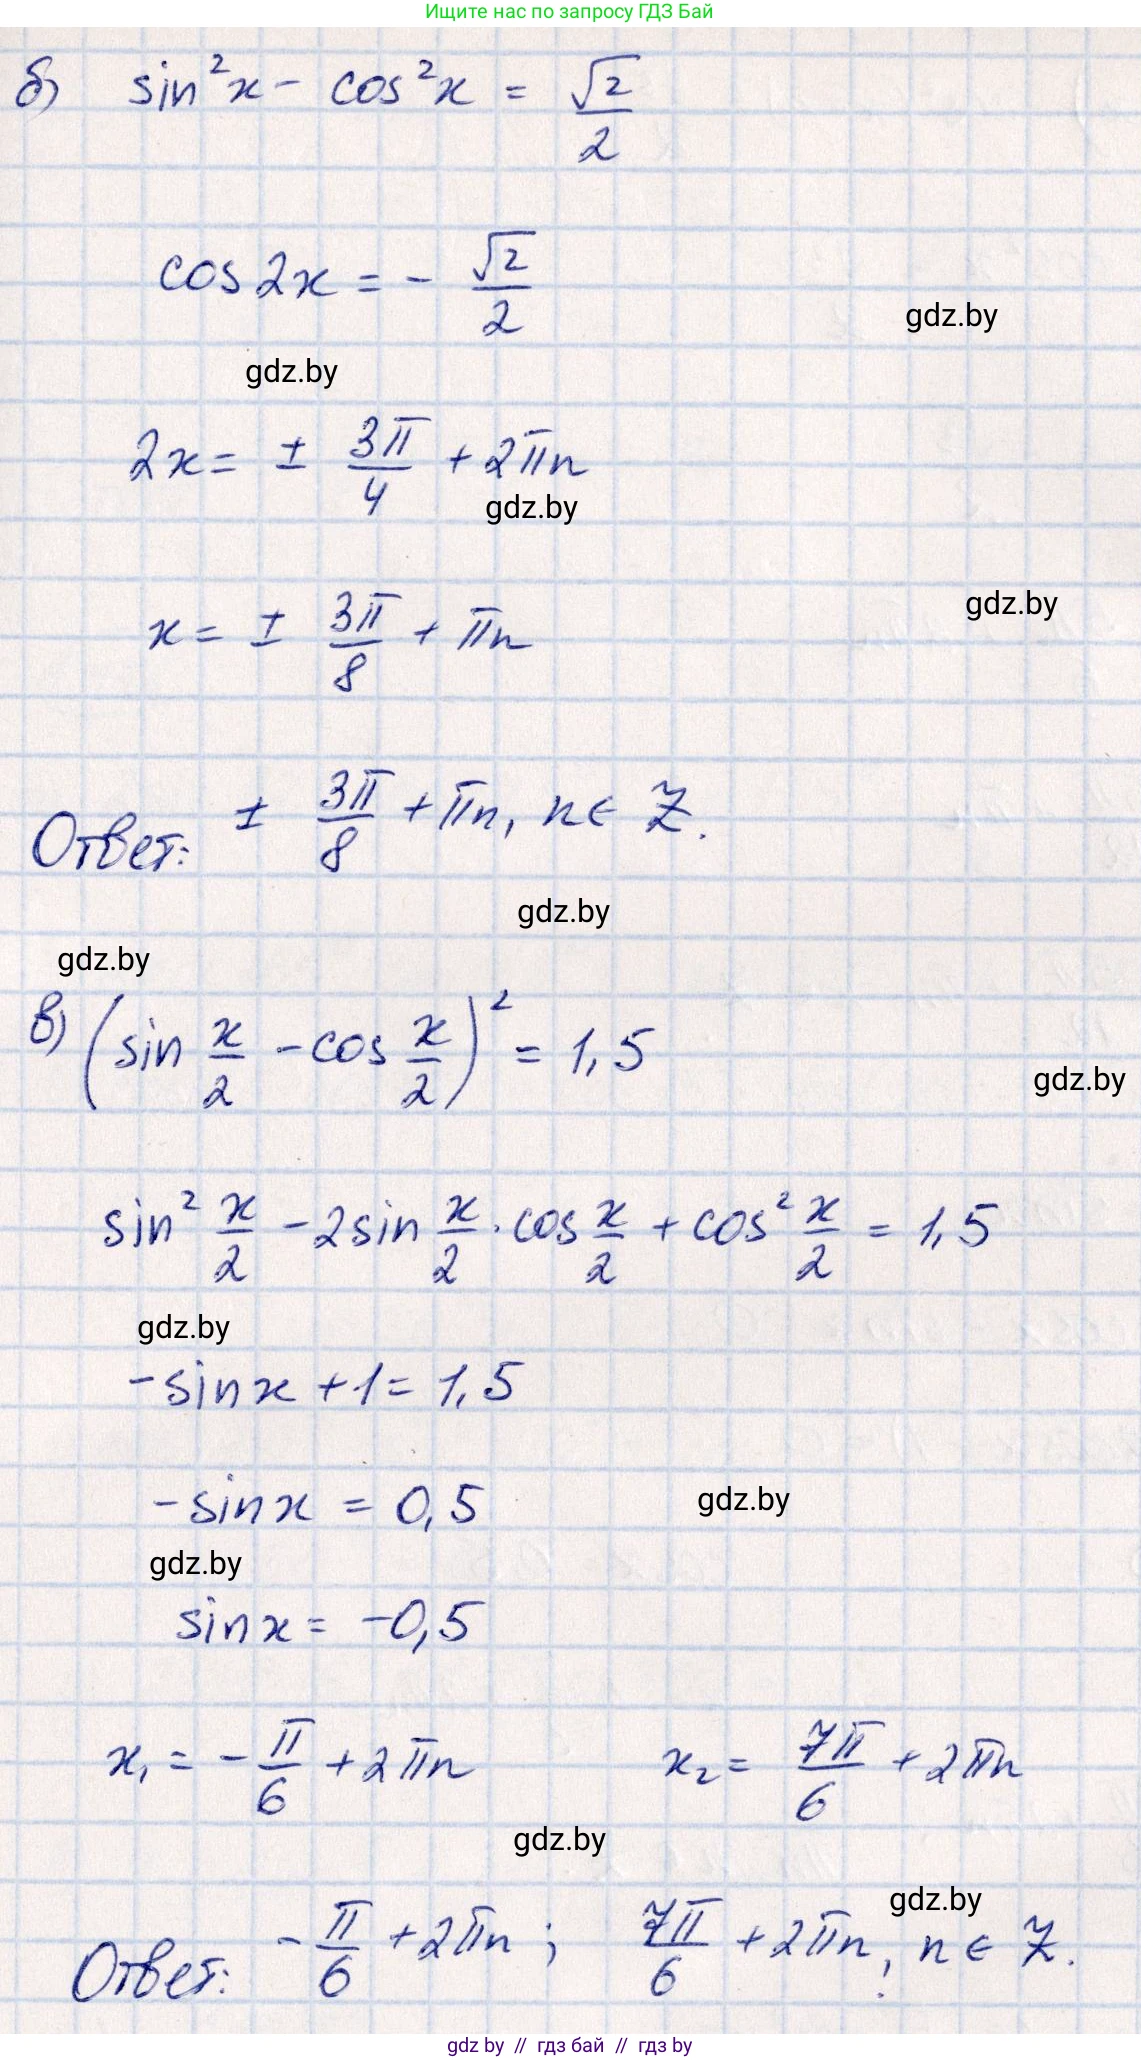 Ищите нас по запросу ГДЗ Бай
б) sin²x - cos²x = √2/2
cos2x = - √2/2
gdz.by
gdz.by
2x = ± 3π/4 + 2πn
gdz.by
x = ± 3π/8 + πn
gdz.by
Ответ: ± 3π/8 + πn, n ∈ Z.
gdz.by
gdz.by
в) (sin x/2 - cos x/2)² = 1,5
gdz.by
sin² x/2 - 2sin x/2 · cos x/2 + cos² x/2 = 1,5
gdz.by
-sinx + 1 = 1,5
-sinx = 0,5
gdz.by
gdz.by
sinx = -0,5
x₁ = - π/6 + 2πn x₂ = 7π/6 + 2πn
gdz.by
gdz.by
Ответ: - π/6 + 2πn ; 7π/6 + 2πn, n ∈ Z.
gdz by // гдз бай // гдз by